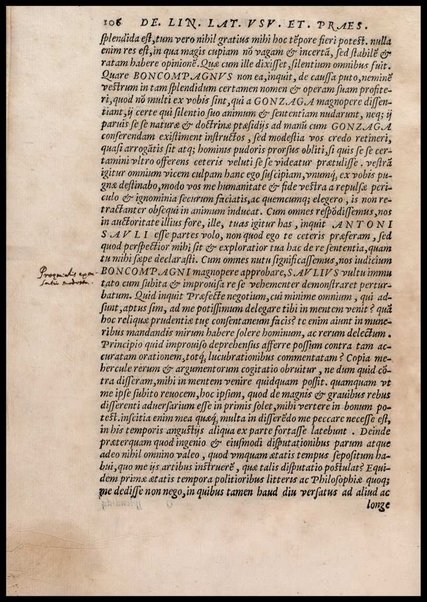 106 DE. LIN. LAT. VSV. ET. PRAES.
splendida est, tum vero nihil gratius mihi hoc tēpore fieri potest. nulla
enim res est, in qua magis cupiam nō vagam & incertā, sed stabilē &
ratam habere opinionē. Quæ cum ille dixisset, silentium omnibus fuit.
Quare BONCOMPAGNVS non ea, inquit, de caussa puto, neminē
vestrūm in tam splendidum certamen nomen & operam suam profite-
ri, quod nō multi ex vobis sint, qui a GONZAGA magnopere dissen-
tiant, ij certe qui silentio suo animum & sententiam nudarunt, neq; ij
parvis se se naturæ & doctrinæ præsidijs ad manū cum GONZAGA
conserendam existiment instructos, sed modestia vos credo retineri,
quasi arrogātis sit atq; hominis pudoris prorsus obliti, si quis se se cer-
tamini vltro offerens ceteris veluti se se videatur prætulisse. vestrā
igitur omnium vicem culpam hanc ego suscipiam, vnumq, ex vobis pu-
gnæ destinabo, modo vos me humanitate & fide vestra a repulsæ pericu-
lo & ignominia securum faciatis, ac quemcumq; elegero, is non re-
tractanter obsequi in animum inducat. Cum omnes respōdissemus, nos
in auctoritate illius fore, ille, tuas igitur has, inquit ANTONI
SAVLI esse partes volo, non quod ego te ceteris præferam, sed
quod perspectior mihi sit & exploratior tua hac de re sententia, quam
tu mihi sæpe declarasti. Cum omnes nutu significassemus, nos iudicium
BONCOMPAGNI magnopere approbare, SAVLIVS vultu immu
tato cum subita & improuisa re se vehementer demonstraret pertur-
batum. Quid inquit Præfecte negotium, cui minime omnium, qui ad-
sunt, aptus sim, ad me potissimum delegare tibi in mentem venit? quā
hoc reliquæ prudentiæ tuæ consentaneum facis? te enim aiunt in mune-
ribus mandandis mirum habere solere hominum, ac rerum delectum.
Principio quid improuiso deprehensus afferre possum contra tam ac-
curatam orationem, totq, lucubrationibus commentatam? Copia me-
hercule rerum & argumentorum cogitatio obruitur, ne dum quid cō-
tra disseram, mihi in mentem venire quidquam possit. quamquam vt
me ipse subito reuocem, hoc ipsum, quod de magnis & grauibus rebus
disserenti aduersarium esse in primis solet, mihi vertere in bonum po-
test. inscitia enim mea quæq, multa in differēdo me peccare necesse est,
in his temporis angustijs aliqua ex parte fortasse latebunt. Deinde
præterquam quod ingenio & eiusmodi disputationibus parum atque
adeo nihil omnino valeo, quod vnquam ætatis tempus sepositum ha-
bui, quo me ijs artibus instruerē, quæ talis disputatio postulat? Equi-
dem prima ætatis tempora politioribus litteris ac Philosophiæ quoq;
me dedisse non nego, in quibus tamen haud diu versatus ad aliud ac
longe